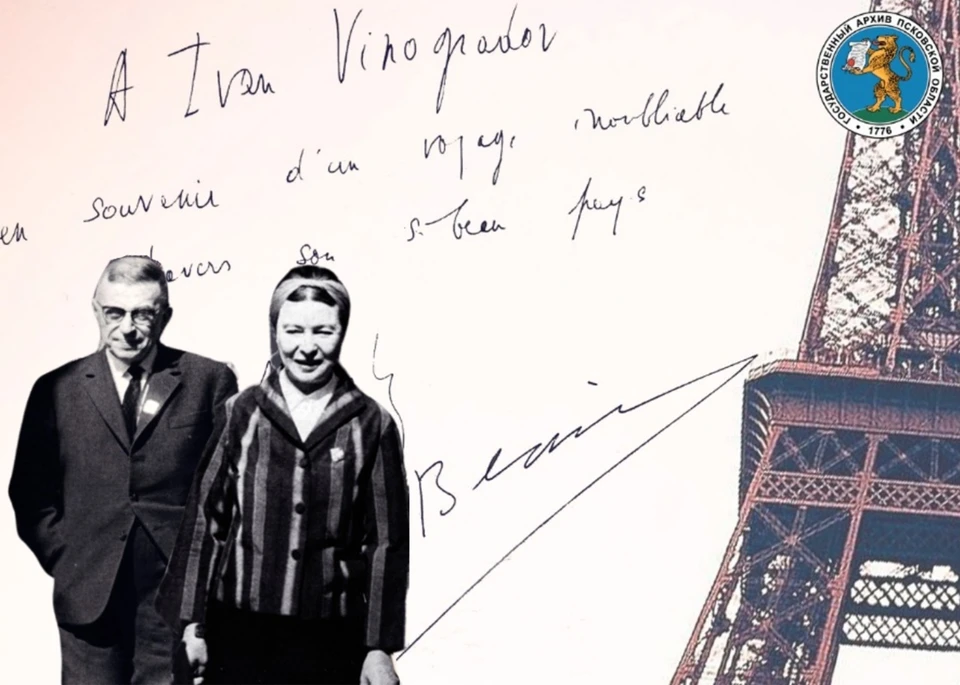 A Ivan Vinogradov
en souvenir d'un voyage inoubliable
travers son si beau pays
ГОСУДАРСТВЕННЫЙ АРХИВ ПСКОВСКОЙ ОБЛАСТИ
• 1776 •